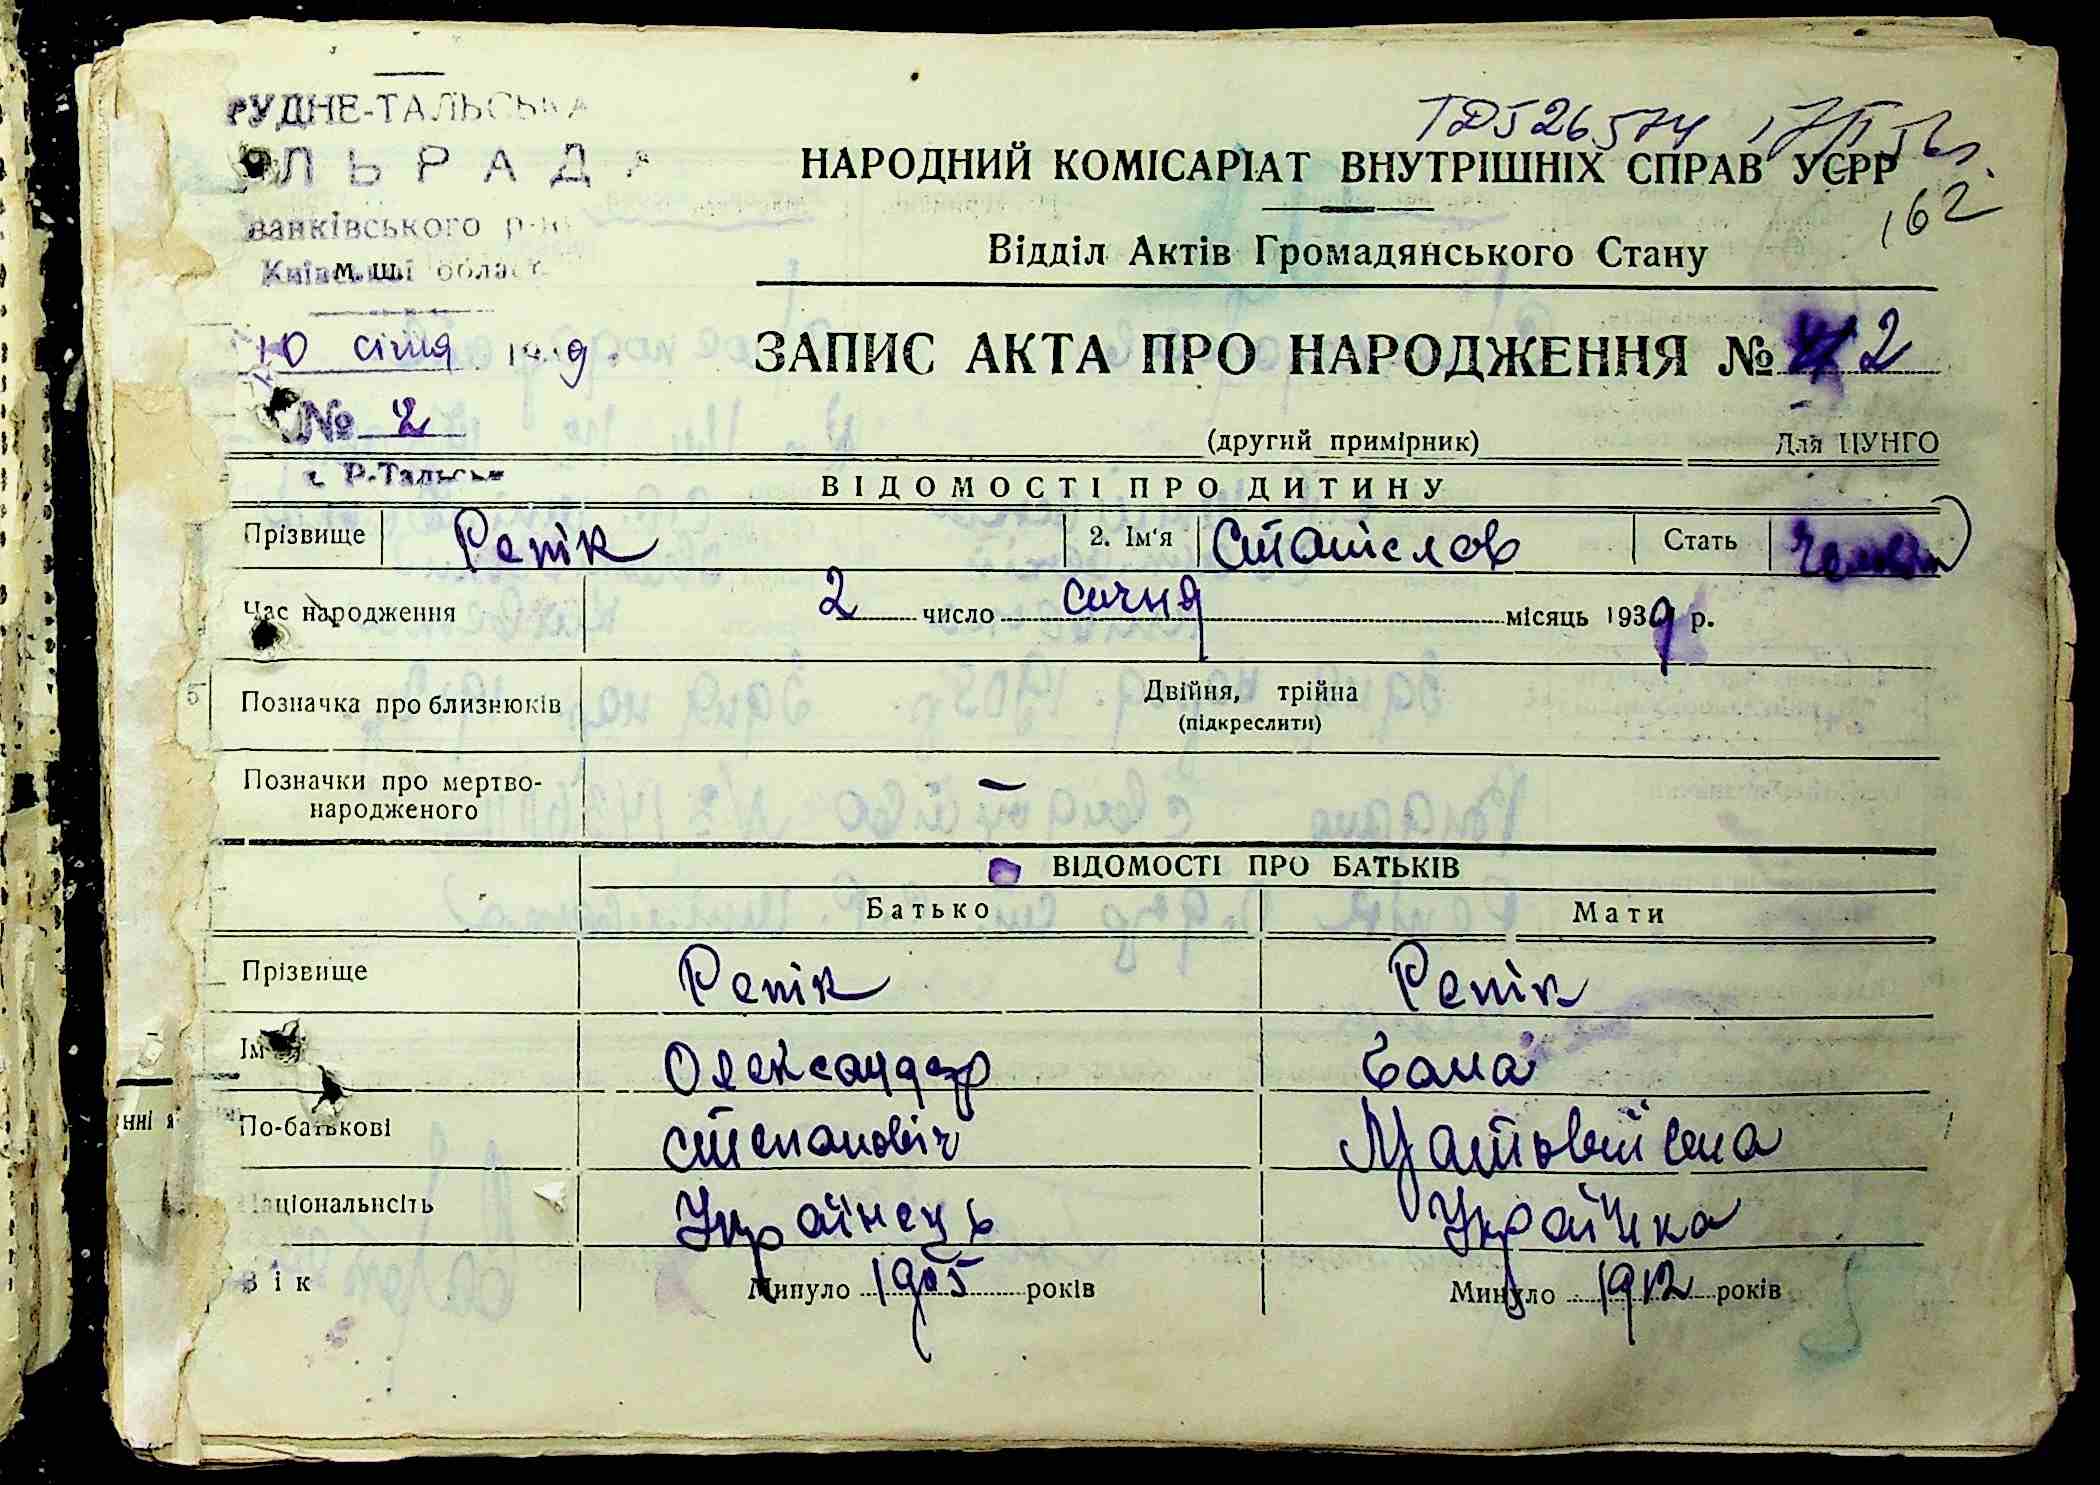 РУДНЕ-ТАЛЬСЬКА
ЛЬРАДА
ванківського р-н
Київської област.
10 січня 1939.
№ 2
с. Р-Тальськ
ТД526574 17/II 56г.
162
НАРОДНИЙ КОМІСАРІАТ ВНУТРІШНІХ СПРАВ УСРР
Відділ Актів Громадянського Стану
ЗАПИС АКТА ПРО НАРОДЖЕННЯ № 2
(другий примірник) Для ЦУНГО
ВІДОМОСТІ ПРО ДИТИНУ
Прізвище Репік 2. Ім'я Станіслав Стать
Час народження 2 число січня місяць 1939 р.
5 Позначка про близнюків Двійня, трійна
(підкреслити)
Позначки про мертво-
народженого —
ВІДОМОСТІ ПРО БАТЬКІВ
Батько Мати
Прізвище Репік Репік
Ім Олександр Ганна
По-батькові Степановіч Матвіївна
Національність Українець Українка
Вік Минуло 1905 років Минуло 1912 років